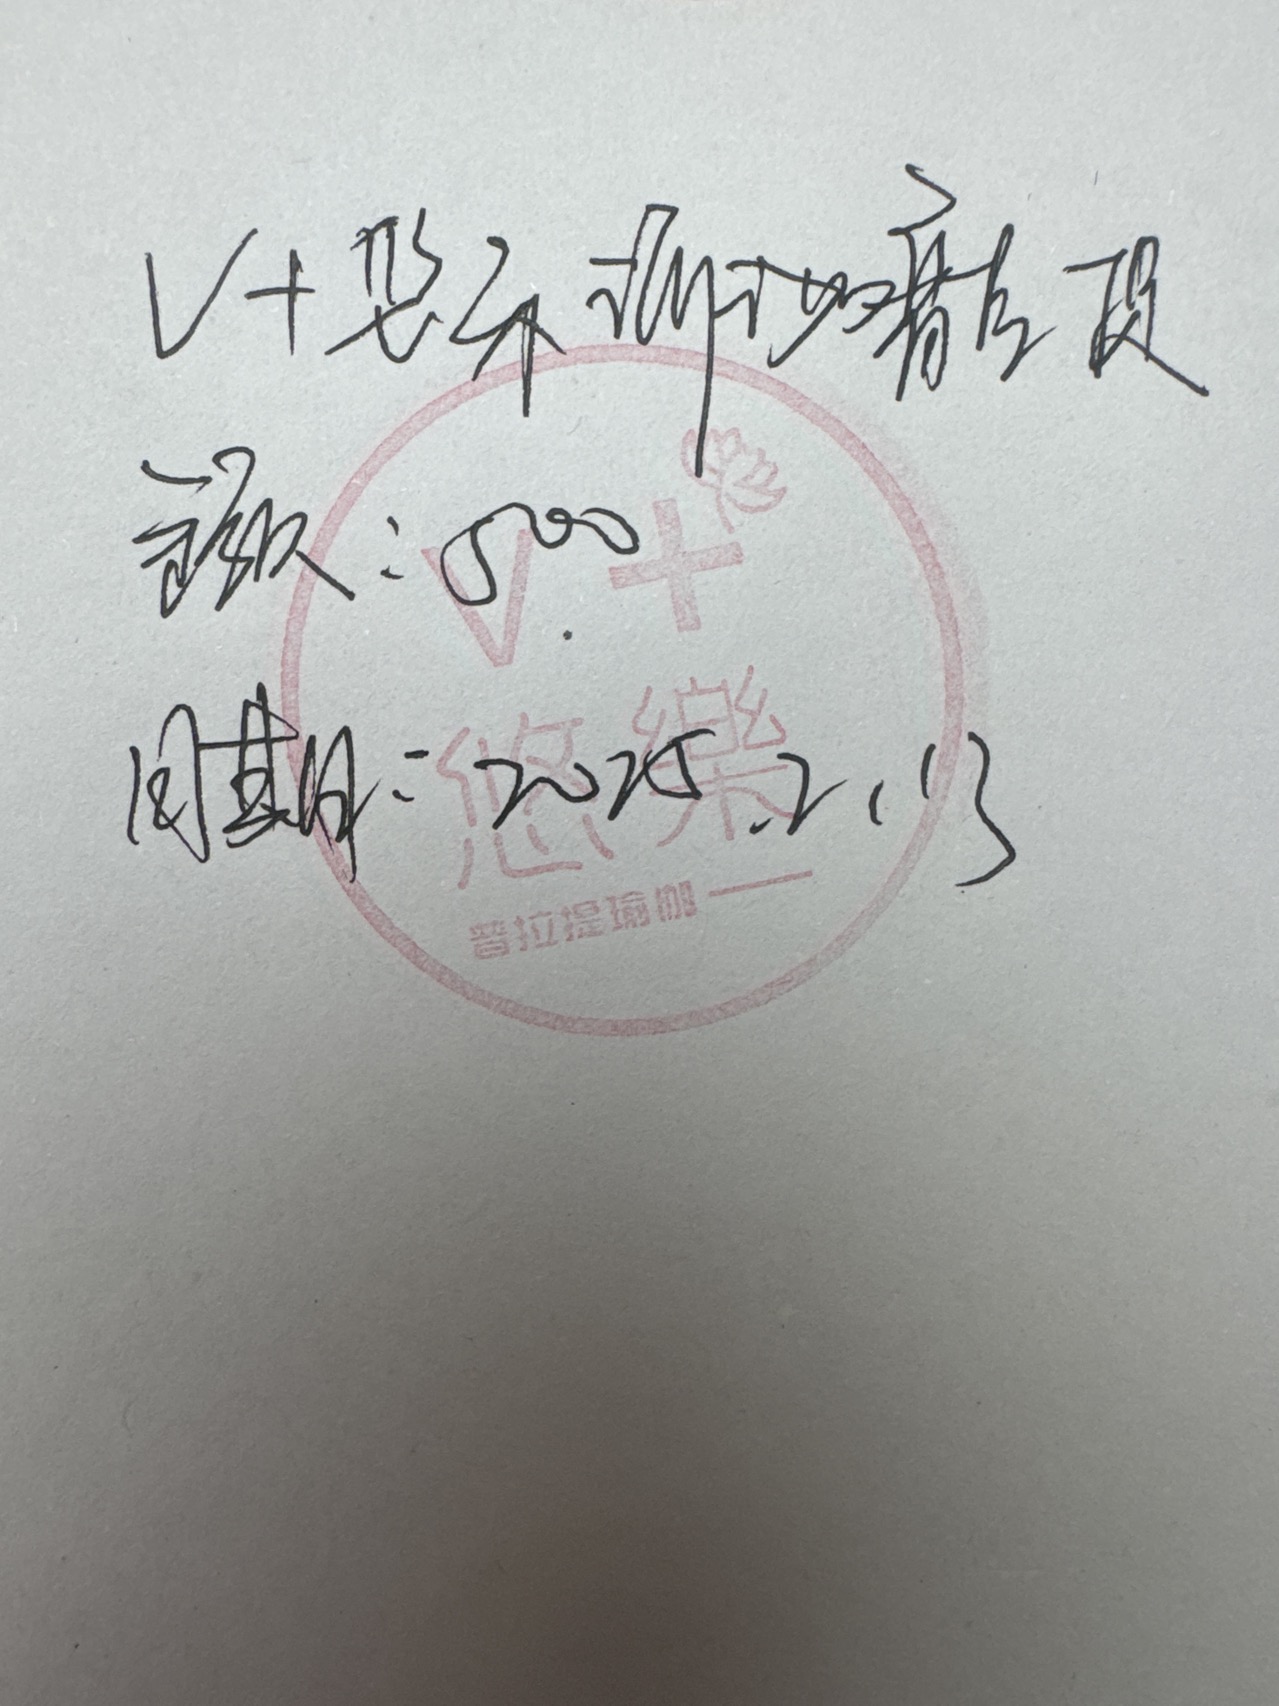 V+悠乐瑜伽
金额：500
周期：2025.2.13
V+
悠樂
普拉提瑜伽